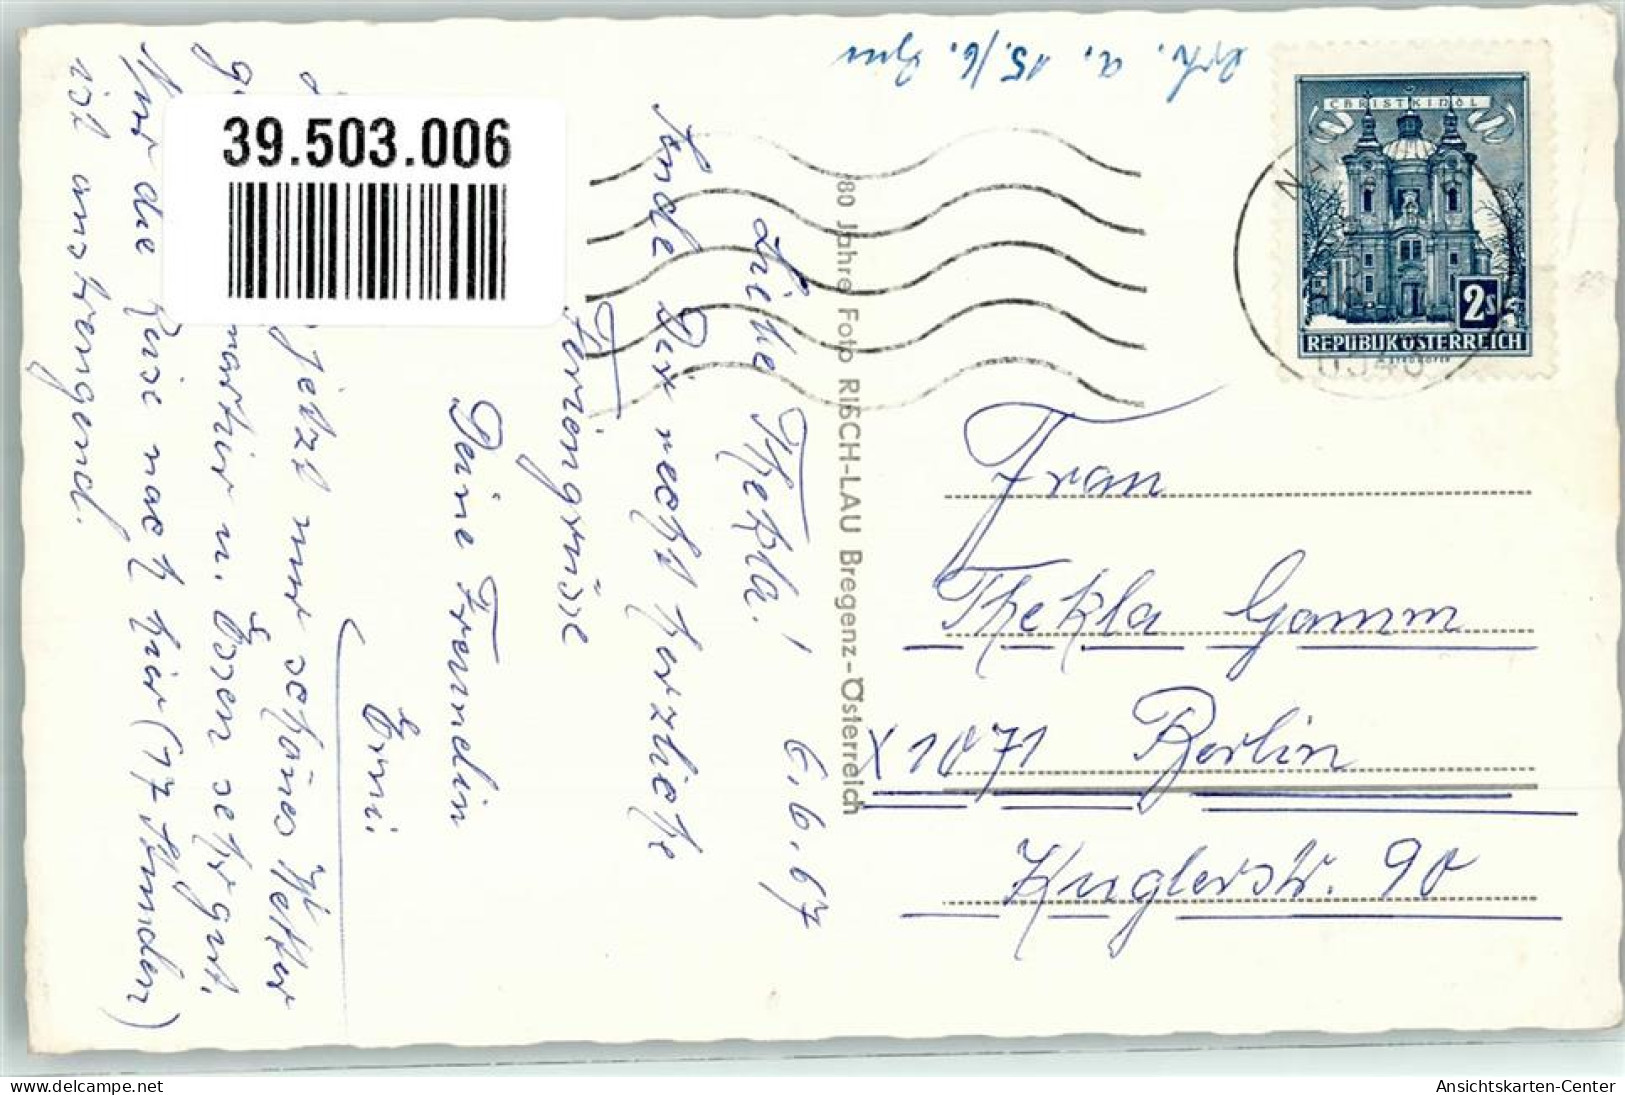 erh. a. 15./6.
39.503.006
CHRISTKINDL
2s
REPUBLIK ÖSTERREICH
80 Jahre Foto RISCH-LAU Bregenz-Österreich
Frau
Thekla Gamm
X 1071 Berlin
Kuglerstr. 90
Liebe Thekla! 6.6.67
Sende Dir recht herzliche
Feriengrüsse
Deine Freundin
Erni.
jetzt nur schönes Wetter
Quartier u. Essen sehr gut.
Nur die Reise nach hier (17 Stunden)
ist anstrengend.
delcampe.net
Ansichtskarten-Center